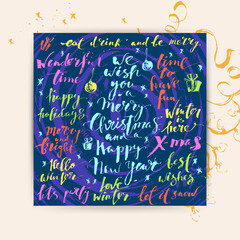 eat drink and be merry
Wonderful time
we wish you a merry Christmas and Happy New year
time to have fun
happy holidays
Winter is here
merry and bright
X-mas
Hello winter
best wishes
love winter
let it snow